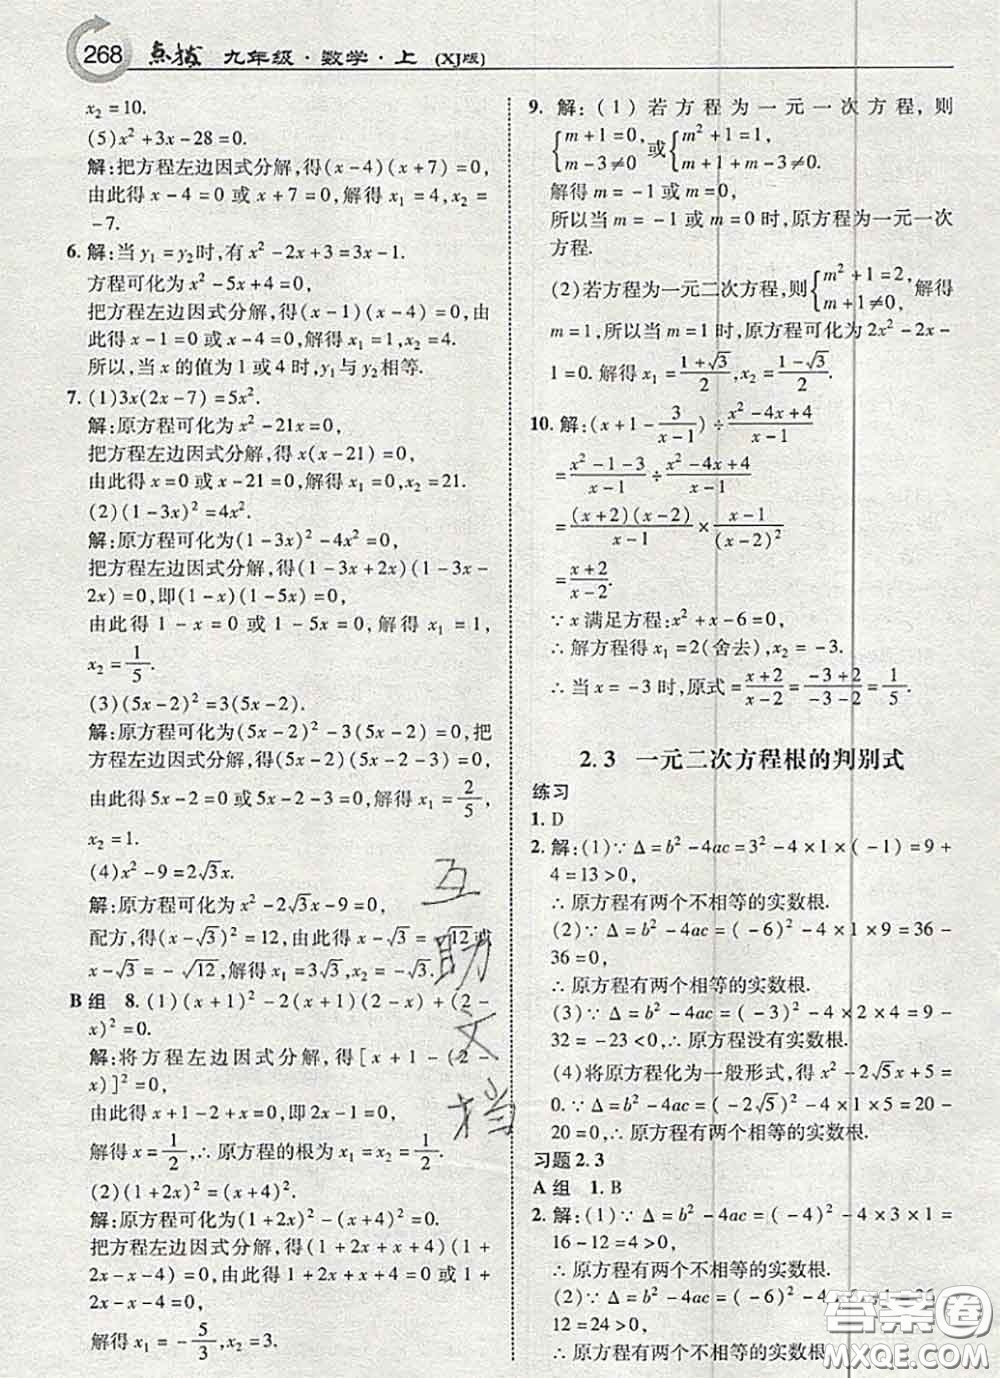 268 点拨 九年级·数学·上 (XJ版)
x₂=10.
(5)x²+3x-28=0.
解:把方程左边因式分解,得(x-4)(x+7)=0,
由此得 x-4=0 或 x+7=0,解得 x₁=4,x₂=
-7.
6. 解:当 y₁=y₂时,有 x²-2x+3=3x-1.
方程可化为 x²-5x+4=0,
把方程左边因式分解,得(x-1)(x-4)=0,由
此得 x-1=0 或 x-4=0,解得 x₁=1,x₂=4.
所以,当 x 的值为 1 或 4 时,y₁与 y₂相等.
7. (1)3x(2x-7)=5x².
解:原方程可化为 x²-21x=0,
把方程左边因式分解,得 x(x-21)=0,
由此得 x=0 或 x-21=0,解得 x₁=0,x₂=21.
(2)(1-3x)²=4x².
解:原方程可化为(1-3x)²-4x²=0,
把方程左边因式分解,得(1-3x+2x)(1-3x-
2x)=0,即(1-x)(1-5x)=0,
由此得 1-x=0 或 1-5x=0,解得 x₁=1,
x₂=1/5.
(3)(5x-2)²=3(5x-2).
解:原方程可化为(5x-2)²-3(5x-2)=0,把
方程左边因式分解,得(5x-2)(5x-2-3)=0,
由此得 5x-2=0 或 5x-5=0,解得 x₁=2/5,
x₂=1.
(4)x²-9=2√3x.
解:原方程可化为 x²-2√3x-9=0,
配方,得(x-√3)²=12,由此得 x-√3=√12或
x-√3=-√12,解得 x₁=3√3,x₂=-√3.
B 组 8. (1)(x+1)²-2(x+1)(2-x)+(2-
x)²=0.
解:将方程左边因式分解,得[x+1-(2-
x)]²=0,
由此得 x+1-2+x=0,即 2x-1=0,
解得 x=1/2,∴原方程的根为 x₁=x₂=1/2.
(2)(1+2x)²=(x+4)².
解:原方程可化为(1+2x)²-(x+4)²=0,
把方程左边因式分解,得(1+2x+x+4)(1+
2x-x-4)=0,由此得 1+2x+x+4=0 或 1+
2x-x-4=0,
解得 x₁=-5/3,x₂=3.
9. 解:(1)若方程为一元一次方程,则
{m+1=0, m-3≠0 或 {m²+1=1, m+1+m-3≠0,
解得 m=-1 或 m=0,
所以当 m=-1 或 m=0 时,原方程为一元一次
方程.
(2)若方程为一元二次方程,则{m²+1=2, m+1≠0, 解得
m=1,所以当 m=1 时,原方程可化为 2x²-2x-
1=0. 解得 x₁=(1+√3)/2,x₂=(1-√3)/2.
10. 解:(x+1-3/(x-1))÷(x²-4x+4)/(x-1)
=(x²-1-3)/(x-1)÷(x²-4x+4)/(x-1)
=(x+2)(x-2)/(x-1)×(x-1)/(x-2)²
=(x+2)/(x-2).
∵x 满足方程:x²+x-6=0,
∴解方程得 x₁=2(舍去),x₂=-3.
∴当 x=-3 时,原式=(x+2)/(x-2)=(-3+2)/(-3-2)=1/5.
2.3 一元二次方程根的判别式
练习
1. D
2. 解:(1)∵Δ=b²-4ac=3²-4×1×(-1)=9+
4=13>0,
∴原方程有两个不相等的实数根.
(2)∵Δ=b²-4ac=(-6)²-4×1×9=36-
36=0,∴原方程有两个相等的实数根.
(3)∵Δ=b²-4ac=(-3)²-4×2×4=9-
32=-23<0,∴原方程没有实数根.
(4)将原方程化为一般形式,得 x²-2√5x+5=
0.∵Δ=b²-4ac=(-2√5)²-4×1×5=20-
20=0,∴原方程有两个相等的实数根.
习题2.3
A 组 1. B
2. 解:(1)∵Δ=b²-4ac=(-4)²-4×3×1=
16-12=4>0,
∴原方程有两个不相等的实数根.
(2)∵Δ=b²-4ac=(-6)²-4
12=24>0,
∴原方程有两个不相等的实数
互助文档
答案圈
MXQE.COM